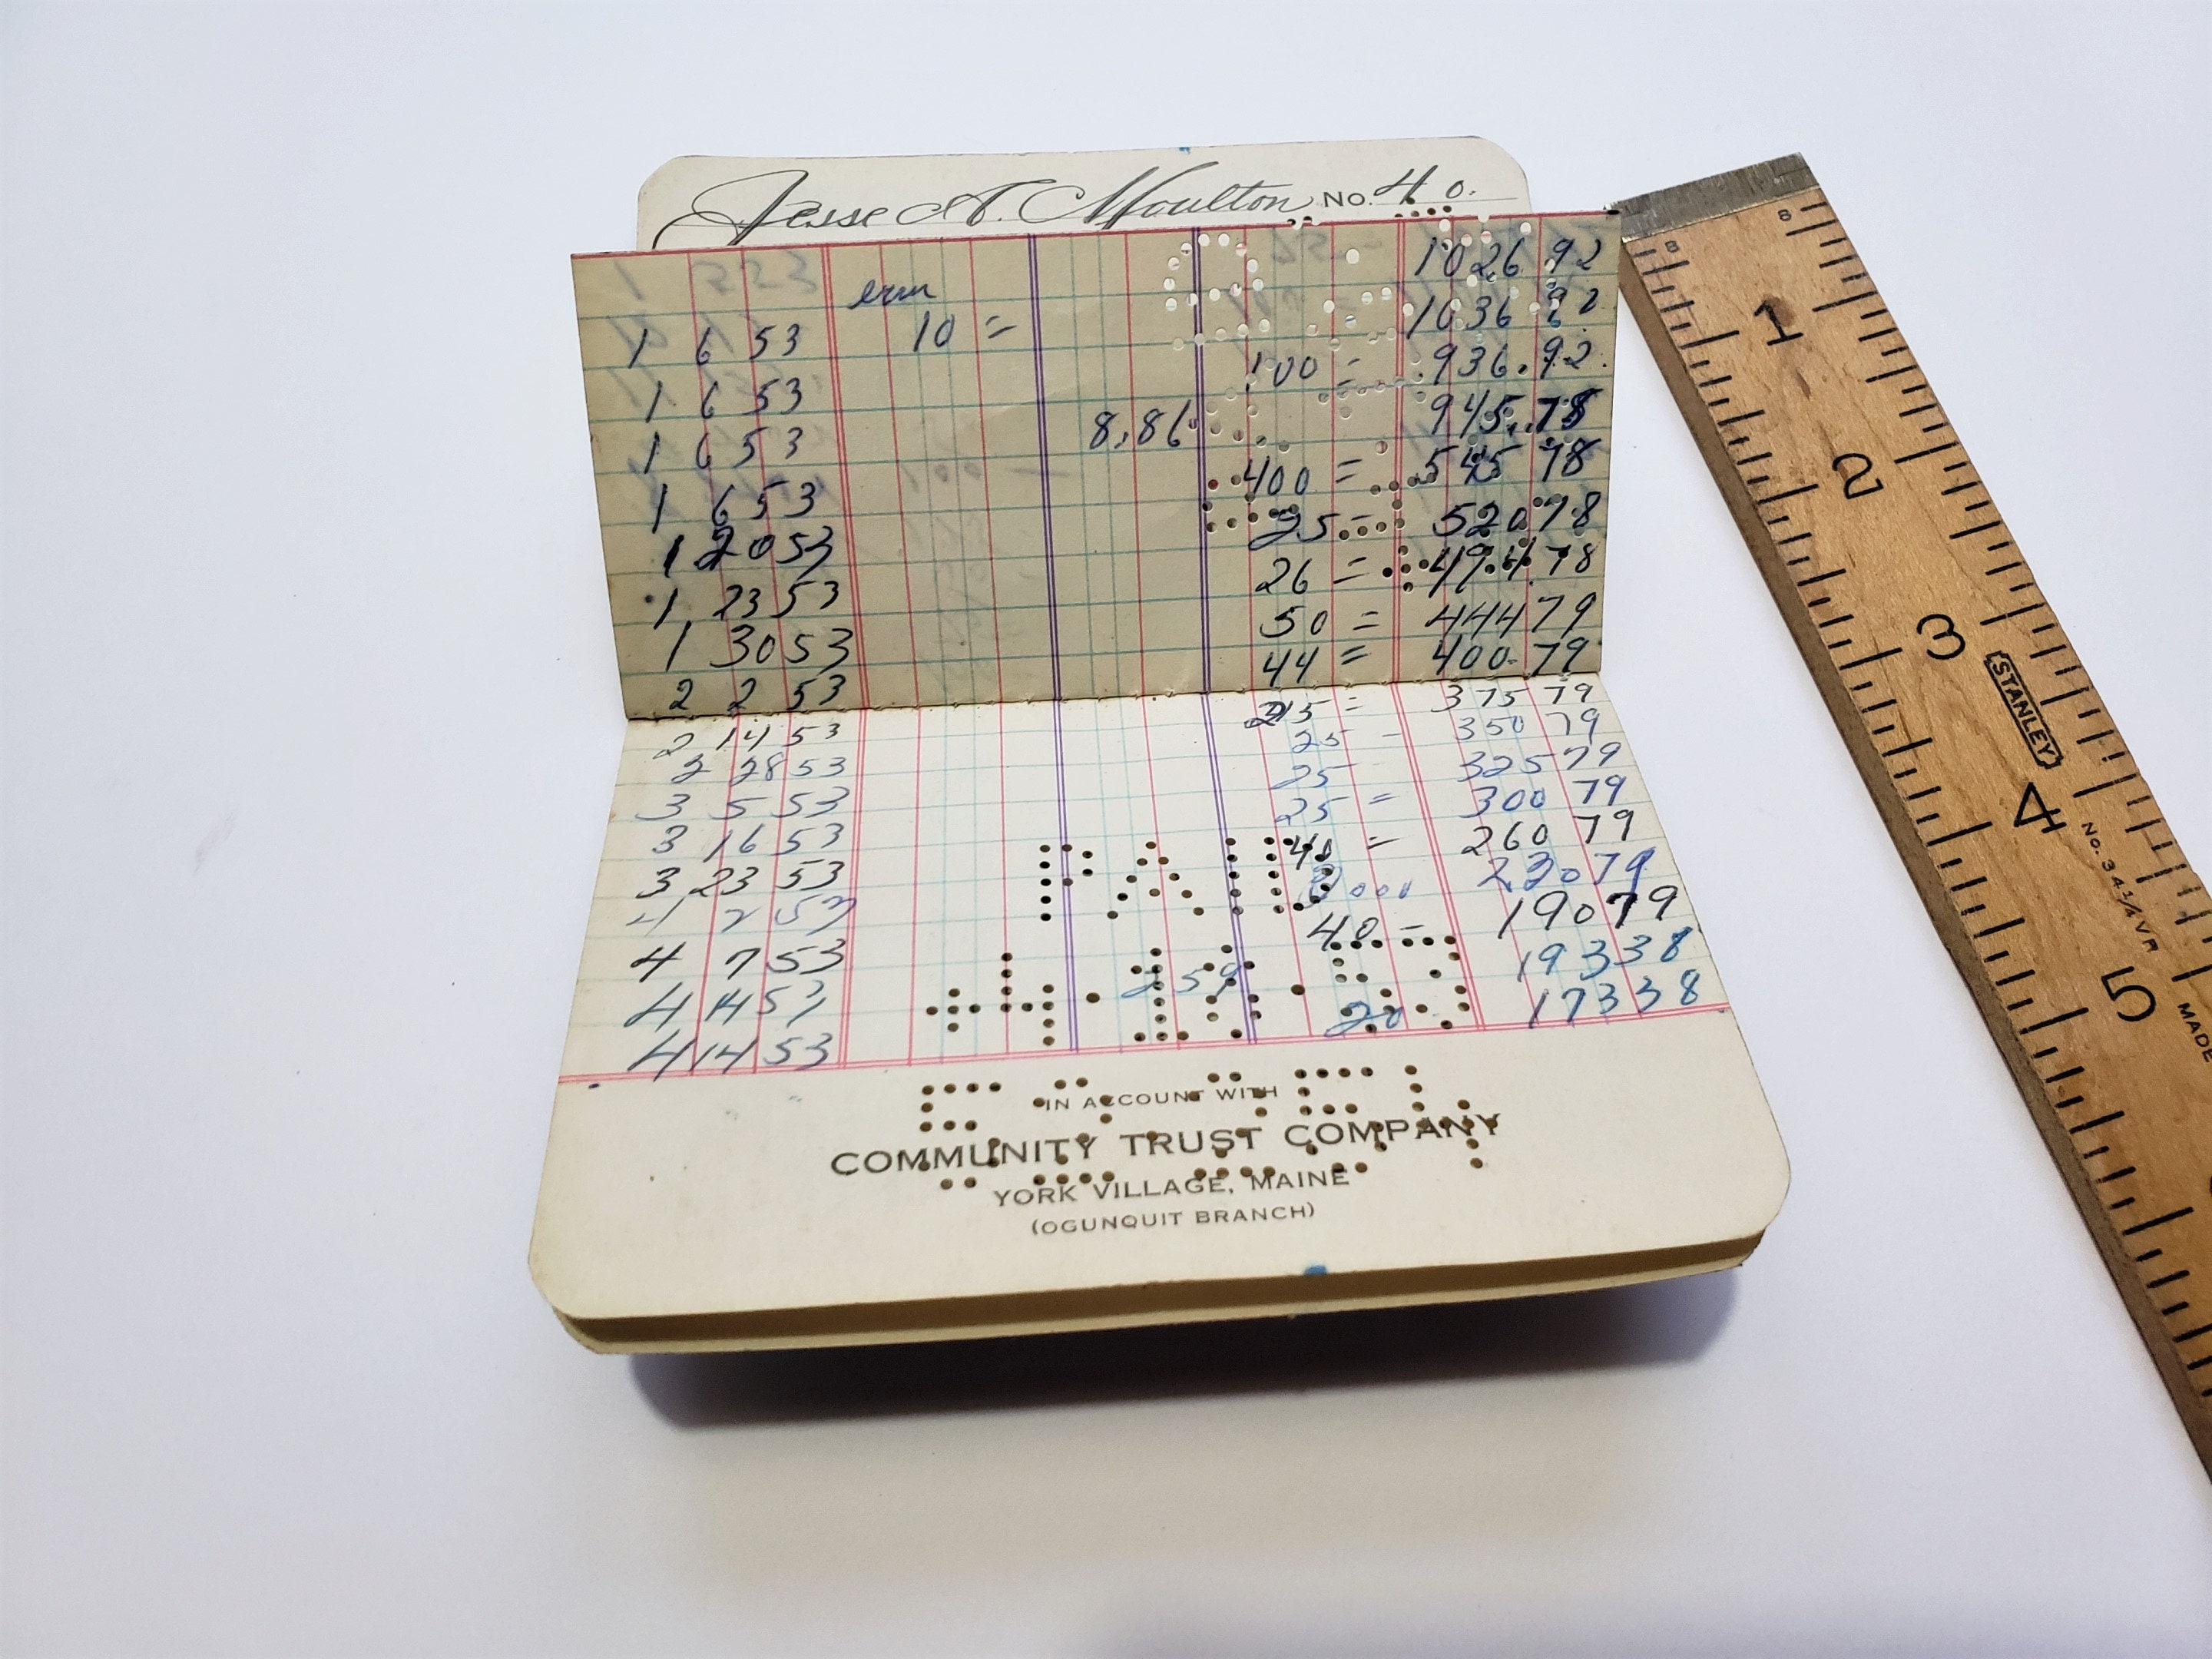 Jesse A. Moulton No. 40.
1026 92
1 6 53 10 = 1036 92
1 6 53 100 = 936.92.
1 6 53 8,86 945.78
1 6 53 400 = 545 78
1 20 53 25 - 520 78
1 23 53 26 = 494.78
1 30 53 50 = 444 79
2 2 53 44 = 400 79
2 14 53 25 = 375 79
2 28 53 25 - 350 79
3 5 53 25 325 79
3 16 53 25 = 300 79
3 23 53 40 = 260 79
4 2 53 230 79
4 7 53 40 - 190 79
4 14 53 2 59 193 38
4 14 53 20 173 38
PAID
IN ACCOUNT WITH
COMMUNITY TRUST COMPANY
YORK VILLAGE, MAINE
(OGUNQUIT BRANCH)
8
8
1
2
3
STANLEY
4
No. 34 1/4 VR
5
MADE